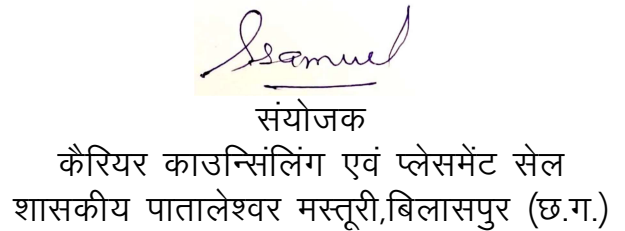 Ssamuel
संयोजक
कैरियर काउन्सिंलिंग एवं प्लेसमेंट सेल
शासकीय पातालेश्वर मस्तूरी,बिलासपुर (छ.ग.)